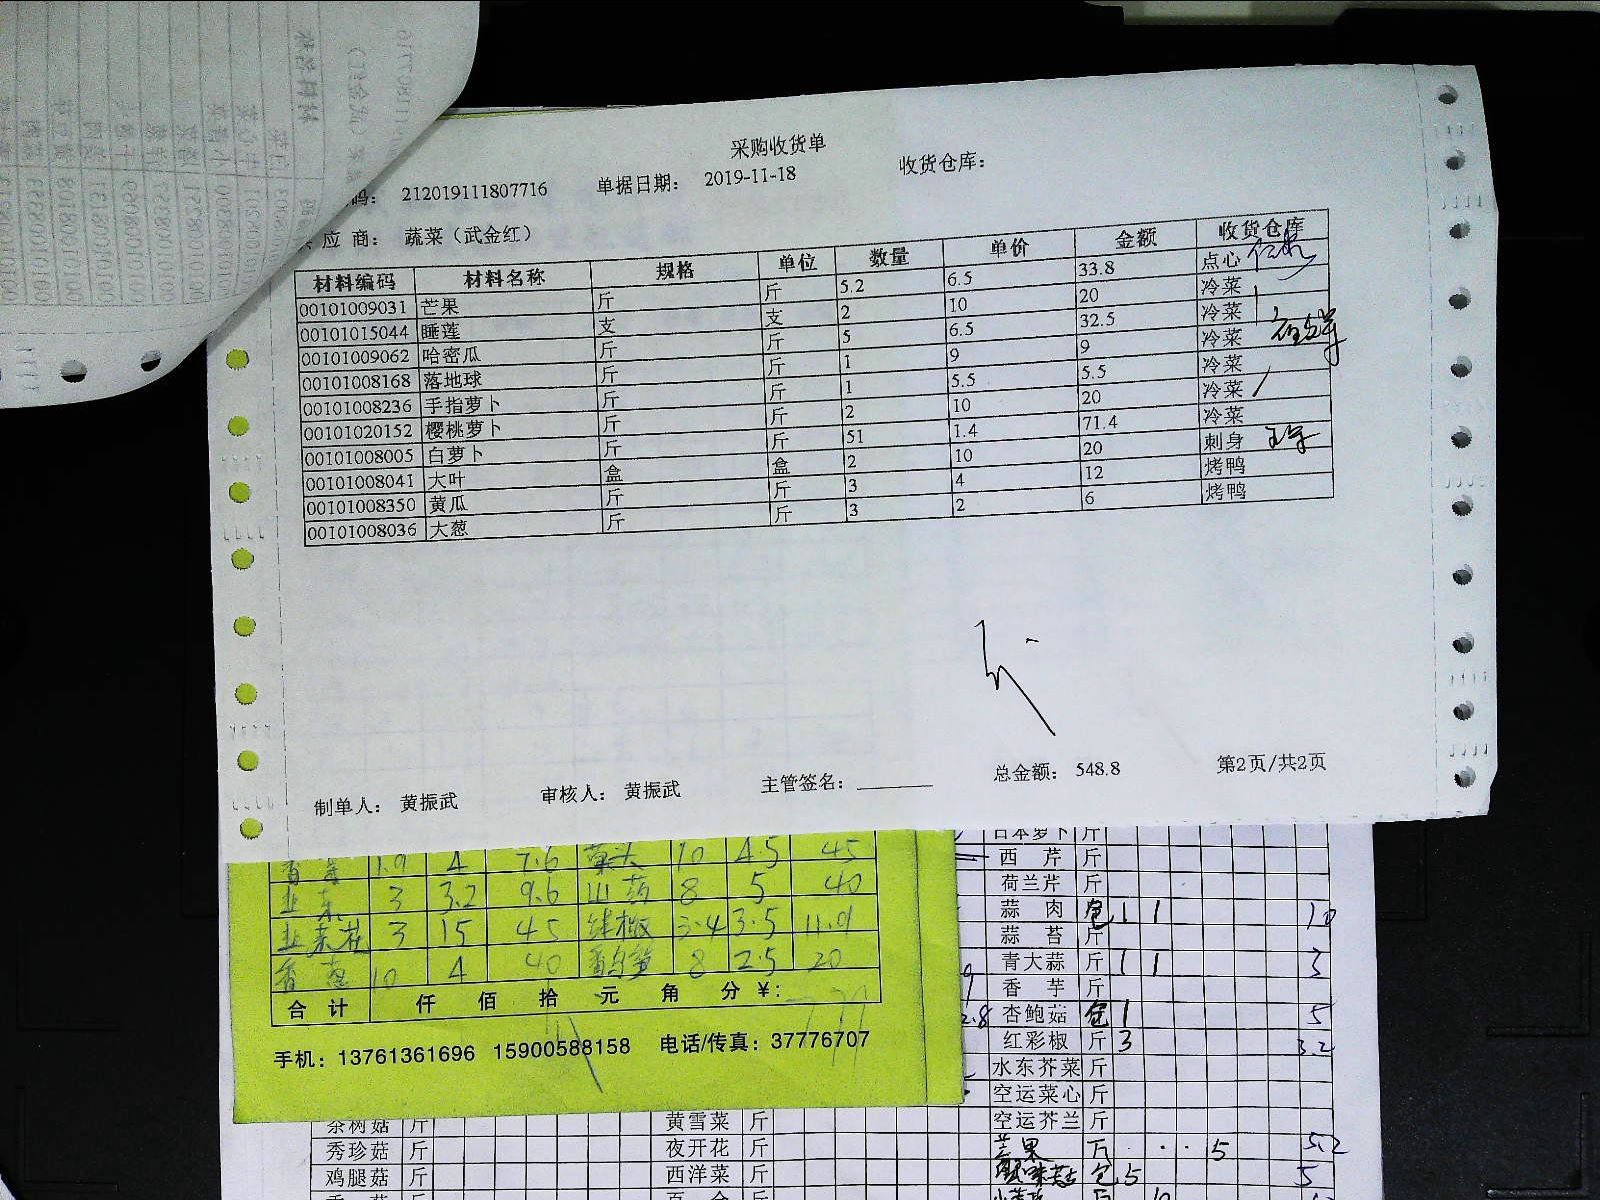 采购收货单
码： 212019111807716 单据日期： 2019-11-18 收货仓库：
应 商： 蔬菜（武金红）
材料编码 材料名称 规格 单位 数量 单价 金额 收货仓库
00101009031 芒果 斤 斤 5.2 6.5 33.8 点心
00101015044 睡莲 支 支 2 10 20 冷菜
00101009062 哈密瓜 斤 斤 5 6.5 32.5 冷菜
00101008168 落地球 斤 斤 1 9 9 冷菜
00101008236 手指萝卜 斤 斤 1 5.5 5.5 冷菜
00101020152 樱桃萝卜 斤 斤 2 10 20 冷菜
00101008005 白萝卜 斤 斤 51 1.4 71.4 冷菜
00101008041 大叶 盒 盒 2 10 20 刺身
00101008350 黄瓜 斤 斤 3 4 12 烤鸭
00101008036 大葱 斤 斤 3 2 6 烤鸭
总金额： 548.8 第2页/共2页
制单人： 黄振武 审核人： 黄振武 主管签名：
1.9 4 7.6 草头 10 4.5 45
韭菜 3 3.2 9.6 山药 8 5 40
韭菜花 3 15 45 3.4 3.5 11.9
香葱 10 4 40 8 2.5 20
合 计 仟 佰 拾 元 角 分 ¥：
手机：13761361696 15900588158 电话/传真：37776707
日本萝卜 斤
西 芹 斤
荷兰芹 斤
蒜 肉 包 1 1 10
蒜 苔 斤
青大蒜 斤 1 1 3
香 芋 斤
杏鲍菇 包 1 5
红彩椒 斤 3 3.2
水东芥菜 斤
空运菜心 斤
茶树菇 斤 黄雪菜 斤 空运芥兰 斤
秀珍菇 斤 夜开花 斤 芒果 斤 5 5.2
鸡腿菇 斤 西洋菜 斤 包 5 5